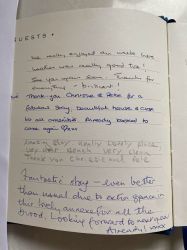 GUESTS •
We really enjoyed our weeks here
weather was really good too!
See you again soon. Thanks for
everything - brilliant!
Thank you Christine & Pete for a
fabulous stay, beautiful house & close
to all amenities. Already booked to
come again
stay really lovely place
very
Thank you Christine and Pete
Fantastic stay - even better
than usual due to extra space in
this lovely annexe for all the
brood. Looking forward to next year
Already! xxx